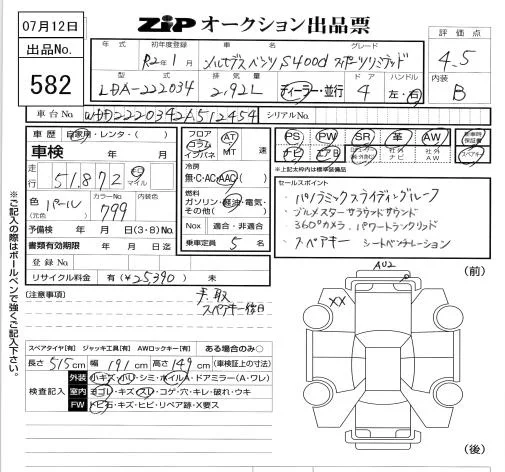 07月12日
ZiP オークション出品票
出品No.
582
評価点
4.5
内装
B
年式 初年度登録 車名 グレード
R2年1月 メルセデスベンツ S400d スポーツリミテッド
型式 排気量 ドア ハンドル
LDA-222034 2.92L ディーラー・並行 4 左・右
車台No. WDD2220342A512454 シリアルNo.
車歴 自家用・レンタ・( )
車検 年 月 日
走行 51,872 km マイル
色 (元色) パール カラーNo. 799 内装色
予備検 年 月 日(3・8)No.
書類有効期限 年 月 日
登録No.
リサイクル料金 有(¥25,390) 未
フロア コラム インパネ AT MT 速
冷房
無・C・AC・AAC( )
燃料
ガソリン・軽油・電気・その他( )
Nox 適合・非適合
乗車定員 5 名
PS PW SR 革 AW
ナビ エアB 社外ナビ 社外AW
新車時保証書
スペアキー
※上記太枠内は標準装備
セールスポイント
・パノラミックスライディングルーフ
・ブルメスターサラウンドサウンド
・360°カメラ、パワートランクリッド
・スペアキー シートベンチレーション
※ご記入の際はボールペンで強くご記入下さい。
[注意事項]
手、取
スペアキー後日
スペアタイヤ[有] ジャッキ工具[有] AWロックキー[有] ある場合のみ○
長さ 515cm 幅 191cm 高さ 149cm (車検証上の寸法)
検査記入
外装 小キズ・小U・シミ・ホイルA・ドアミラー(A・ワレ)
室内 ヨゴレ・キズ・スレ・コゲ・穴・キレ・破れ・ウキ
FW トビ石・キズ・ヒビ・リペア跡・X要ス
AU2
(前)
XX
(後)